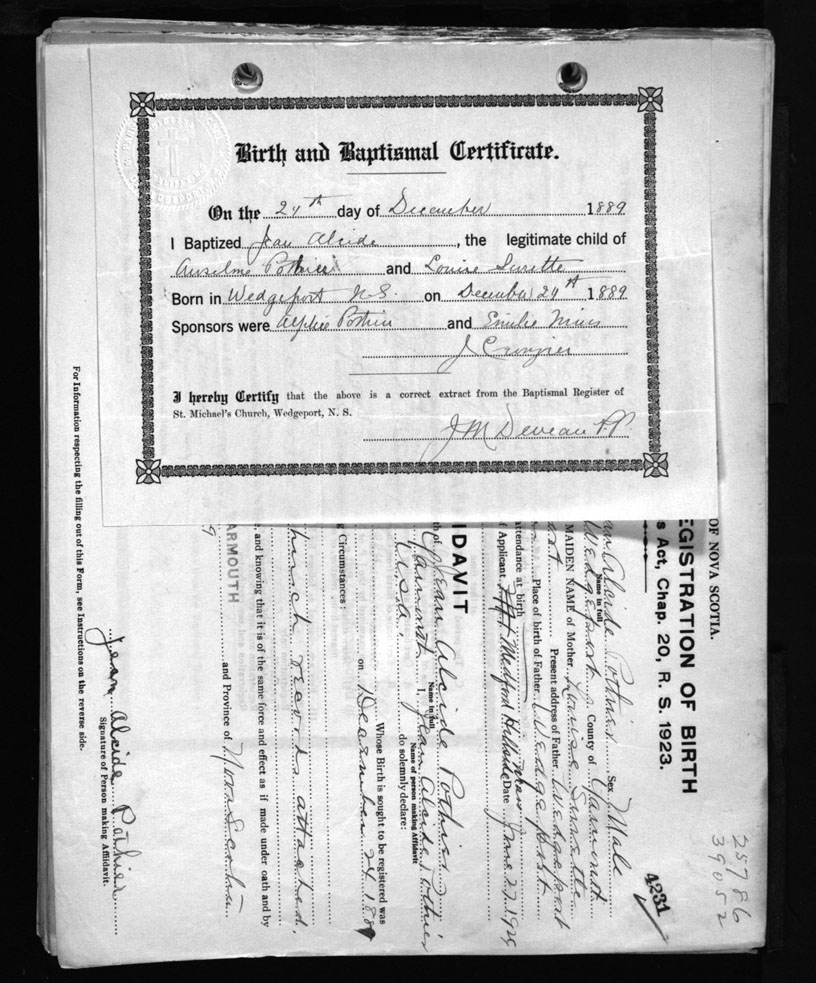 Birth and Baptismal Certificate.
On the 24th day of December 1889
I Baptized Jean Alcide, the legitimate child of
Anselme Pothier and Louise Surette
Born in Wedgeport N.S. on December 24th 1889
Sponsors were Alphée Pothier and Emilie
J Crozier
I hereby Certify that the above is a correct extract from the Baptismal Register of
St. Michael's Church, Wedgeport, N. S.
J M Deveau P.P.
OF NOVA SCOTIA.
EGISTRATION OF BIRTH
s Act, Chap. 20, R. S. 1923.
25786
39052
4231
an Alcide Pothier Sex Male
Name in full
Wedgeport County of Yarmouth
MAIDEN NAME of Mother Louise Surette
ort Present address of Father Wedgeport
Place of birth of Father Wedgeport
attendance at birth
f Applicant Medford Hillside Mass Date June 27, 1929
IDAVIT
th of Jean Alcide Pothier
Name in full
Yarmouth I, Jean Alcide Pothier
Name of person making Affidavit
U.S.A. do solemnly declare:
Whose Birth is sought to be registered was
on December 24 1889
g Circumstances:
hurch records attached.
e, and knowing that it is of the same force and effect as if made under oath and by
ARMOUTH and Province of Nova Scotia
9
Jean Alcide Pothier
Signature of Person making Affidavit.
For Information respecting the filling out of this Form, see Instructions on the reverse side.